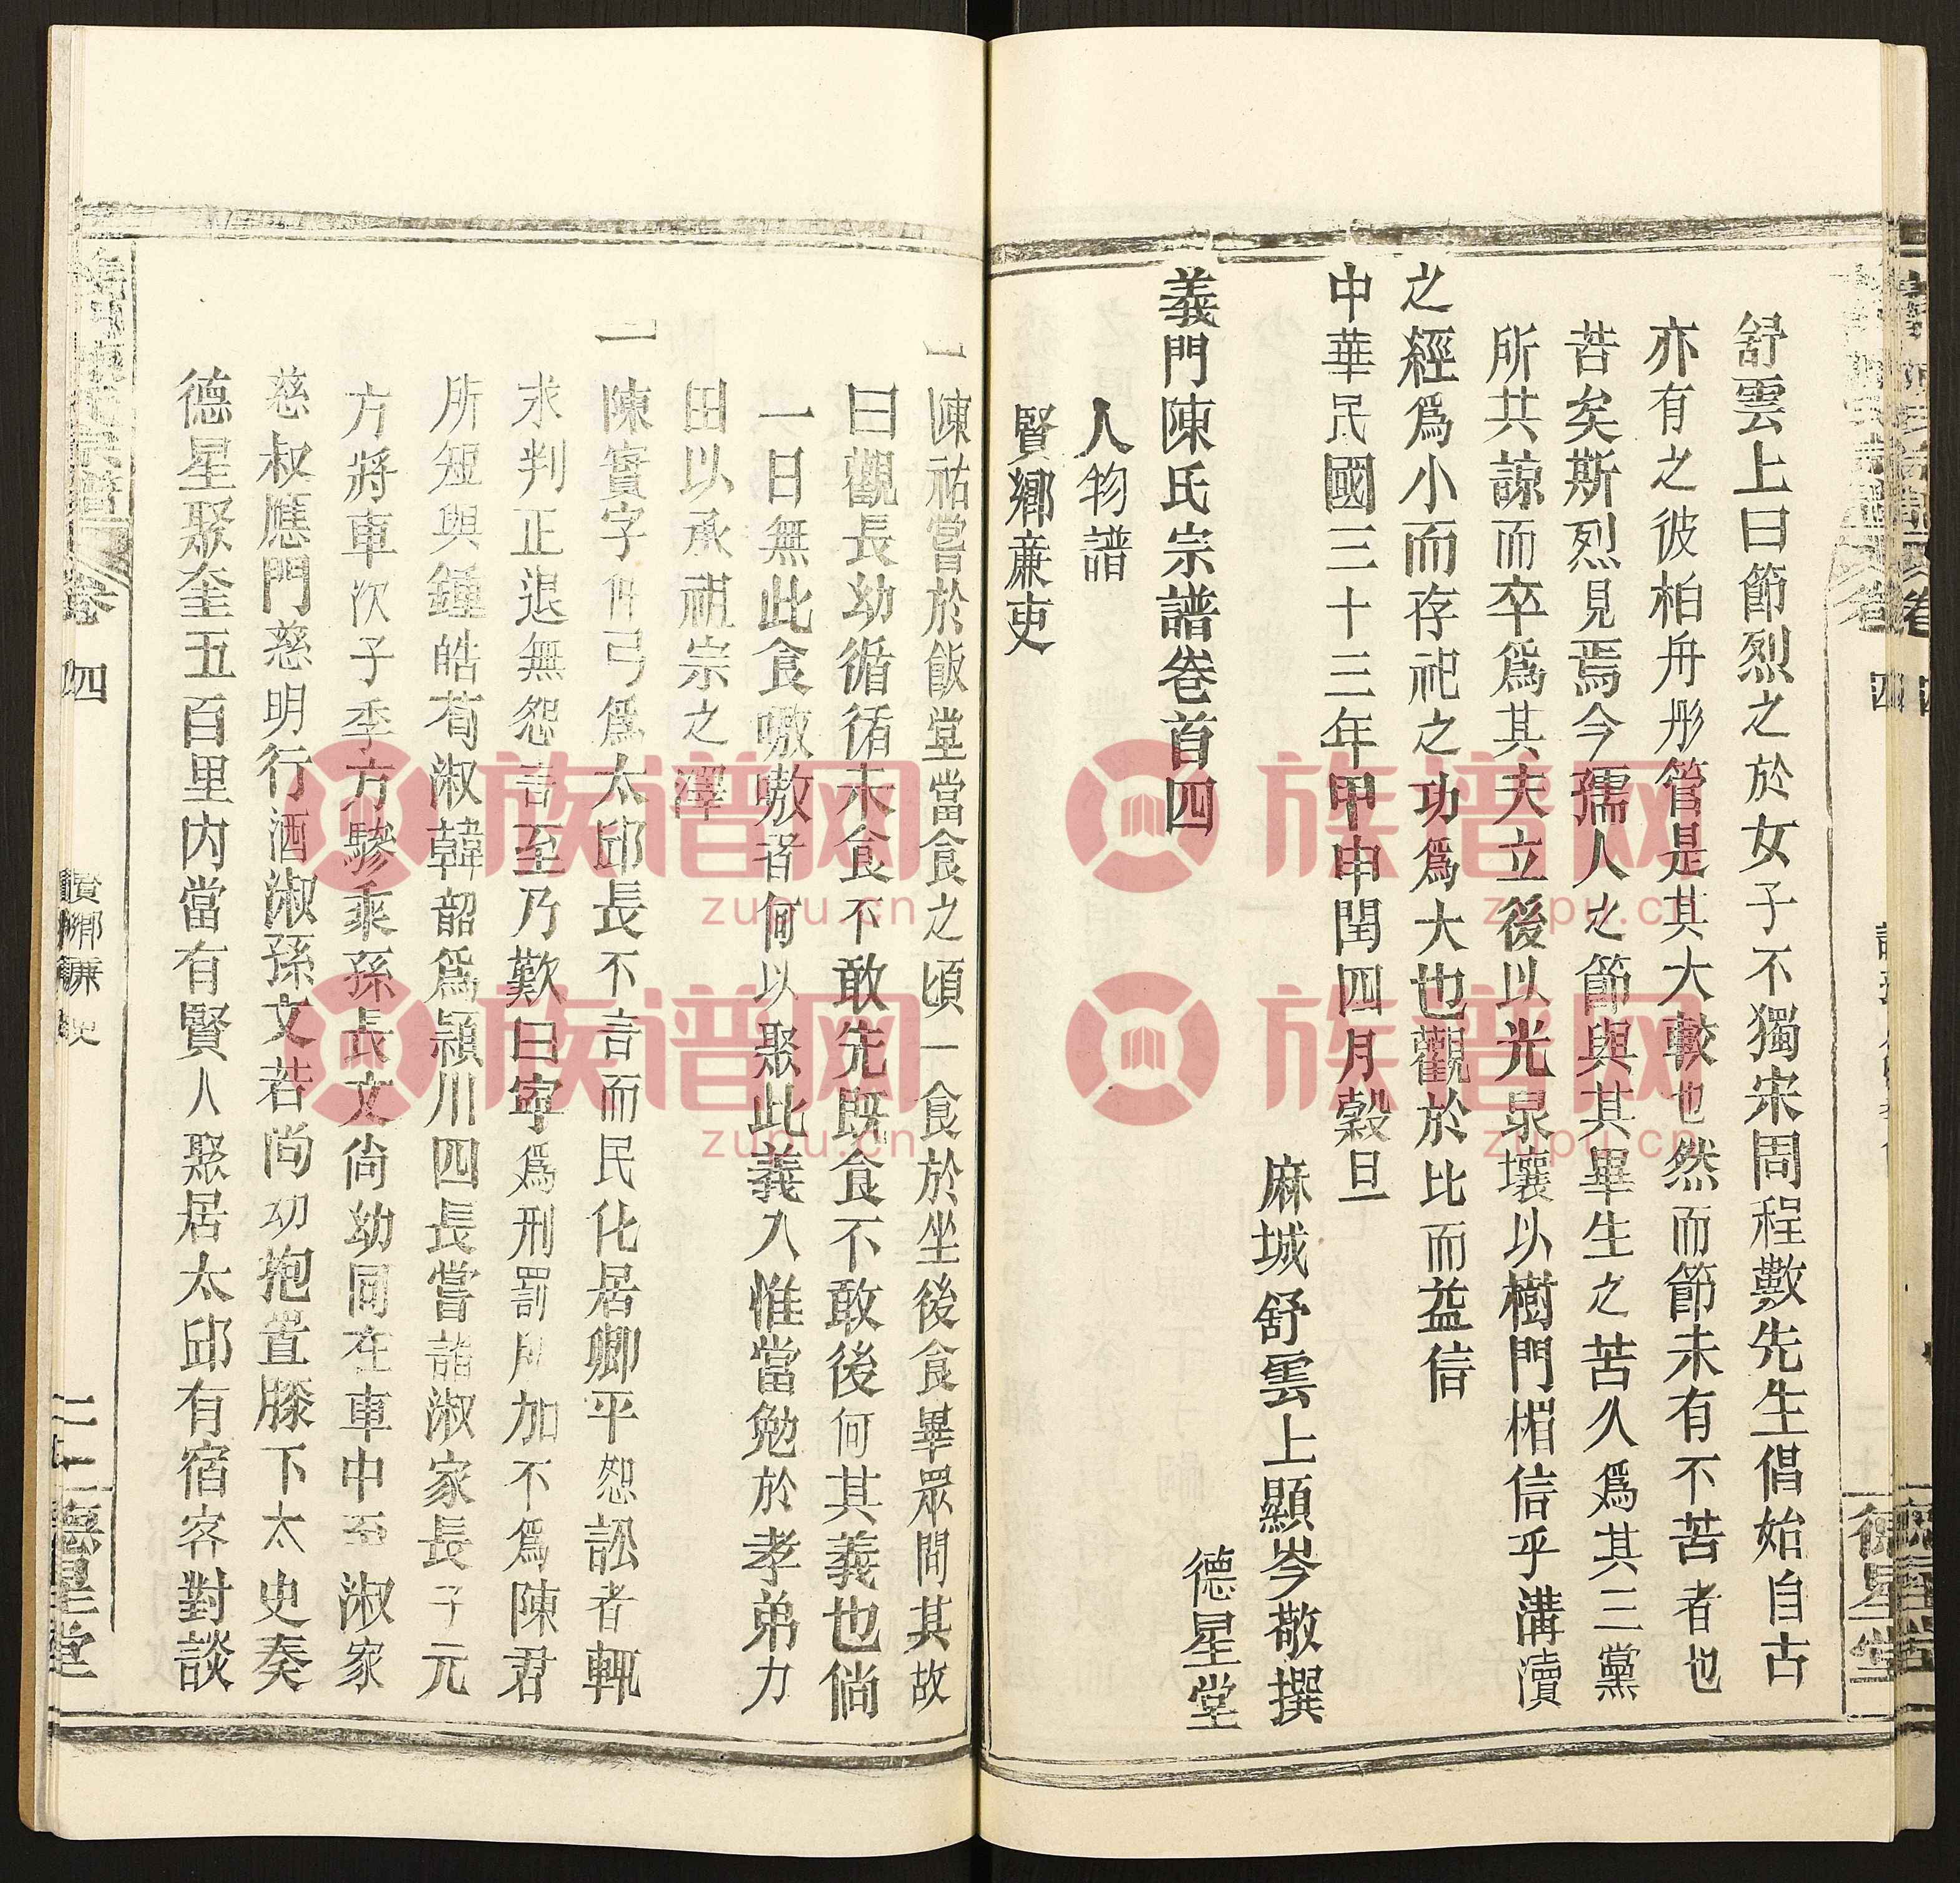 舒雲上曰節烈之於女子不獨宋周程數先生倡始自古
亦有之彼柏舟彤管是其大較也然而節未有不苦者也
苦矣斯烈見焉今孺人之節與其畢生之苦久爲其三黨
所共諒而卒爲其夫立後以光泉壤以樹門楣信乎溝瀆
之經爲小而存祀之功爲大也觀於比而益信
中華民國三十三年甲申閏四月穀旦
麻城舒雲上顯岑敬撰
義門陳氏宗譜卷首四
德星堂
人物譜
賢鄉廉吏
德星堂
一陳祐嘗於飯堂當食之頃一食於坐後食畢眾問其故
曰觀長幼循循未食不敢先既食不敢後何其義也倘
一日無此食嗷嗷者何以聚此義人惟當勉於孝弟力
田以承祖宗之澤
一陳實字仲弓爲太邱長不言而民化居鄉平恕訟者輒
求判正退無怨言至乃歎曰寧爲刑罰所加不爲陳君
所短與鍾皓荀淑韓韶爲潁川四長嘗詣淑家長子元
方將車次子季方驂乘孫長文尚幼同在車中至淑家
慈叔應門慈明行酒淑孫文若尚幼抱置膝下太史奏
德星聚奎五百里內當有賢人聚居太邱有宿客對談
卷四
賢鄉廉吏
德星堂
族谱网
zupu.cn
族谱网
zupu.cn
族谱网
zupu.cn
族谱网
zupu.cn